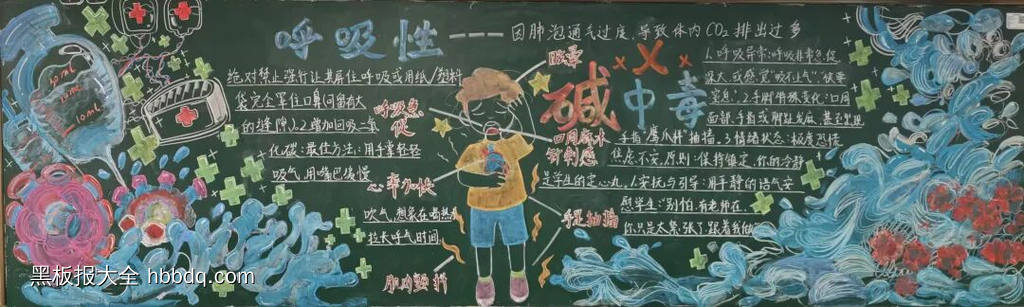 呼吸性——因肺泡通气过度,导致体内CO₂排出过多
碱中毒
绝对禁止强行让其屏住呼吸或用纸/塑料
袋完全罩住口鼻(可留有大
的缝隙).2.增加回吸二氧
化碳:最佳方法:用手掌轻轻
吸气,用嘴巴缓慢
吹气,想象在喝热
拉长呼气时间
呼吸急
促
心率加快
肌肉颤抖
眩晕
口周麻木
有刺感
手足抽搐
1.呼吸异常:呼吸非常急促
深大,或感觉"吸不上气"快要
窒息!2.手脚特殊变化:口周
面部,手指或脚趾发麻,甚至出现
手指"鹰爪样"抽搐.3.情绪状态:极度恐惧
焦虑不安.原则:保持镇定,你的冷静
是学生的定心丸.1.安抚与引导:用平静的语气安
慰学生:"别怕,有老师在,
你只是太紧张了,跟着我做
30mL
15mL
10mL
黑板报大全 hbbdq.com